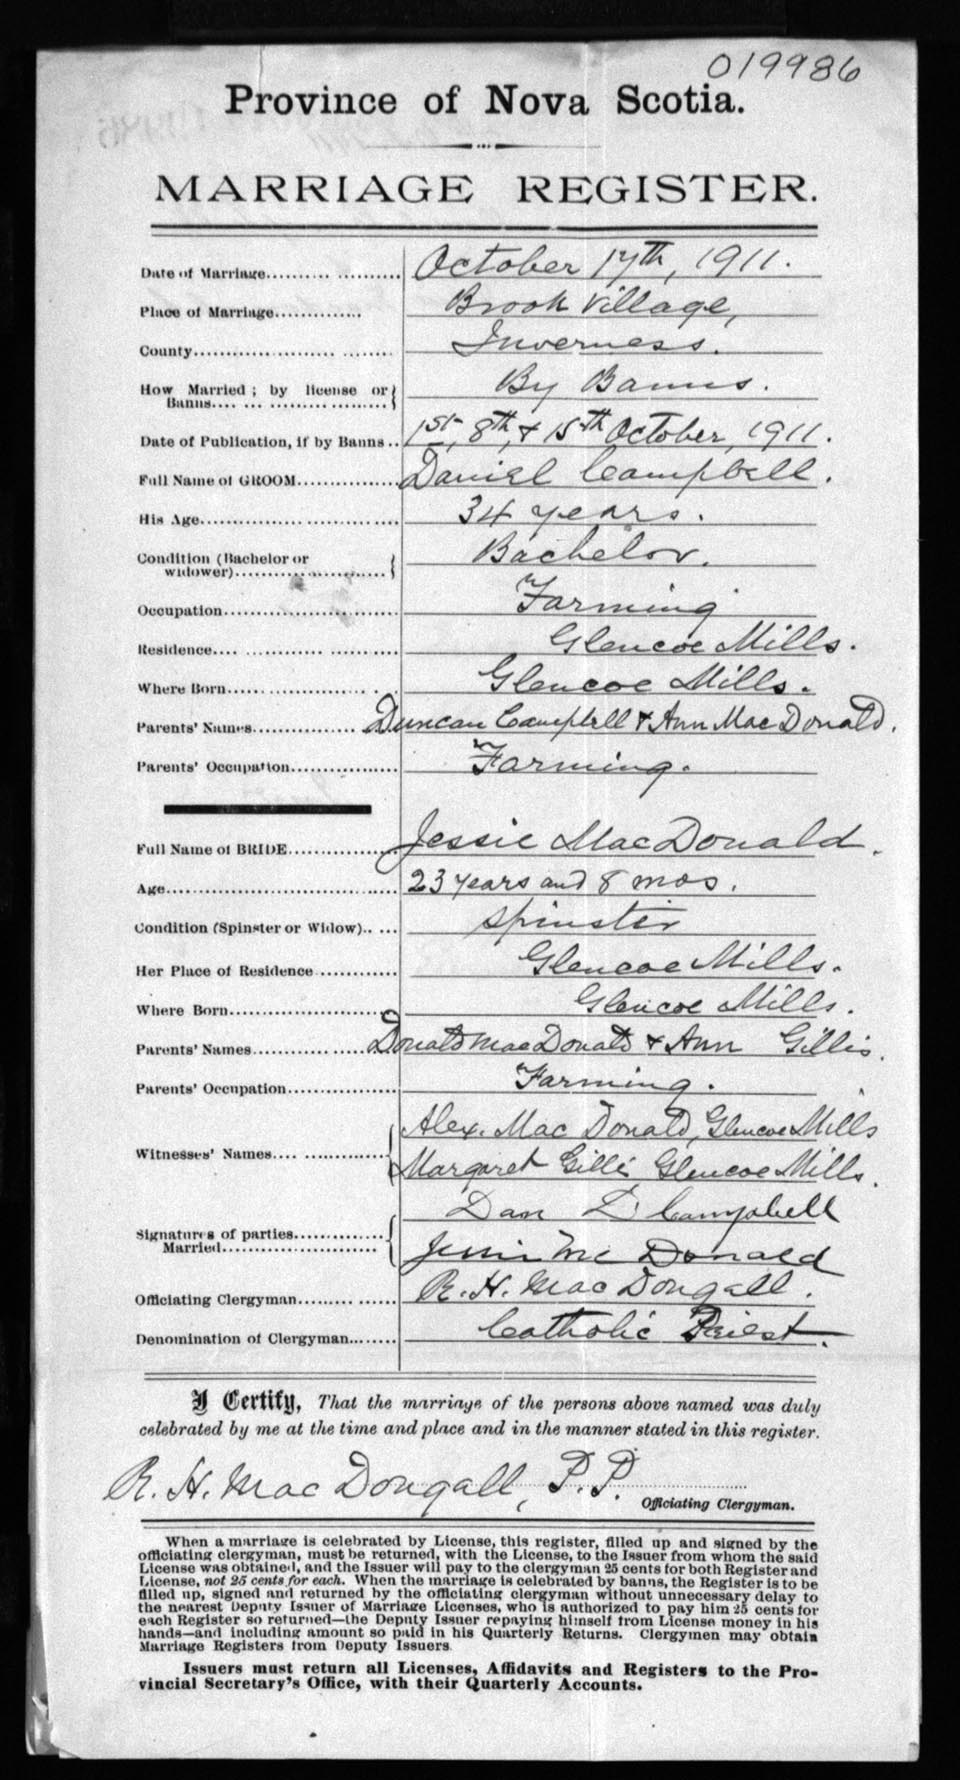 019986
Province of Nova Scotia.
MARRIAGE REGISTER.
Date of Marriage.......... ........... October 17th, 1911.
Place of Marriage.............. Brook Village,
County...................... ........ Inverness.
How Married; by license or
Banns.... ... .................... By Banns.
Date of Publication, if by Banns .. 1st, 8th, & 15th October, 1911.
Full Name of GROOM................. Daniel Campbell.
His Age.................. ............. 34 years.
Condition (Bachelor or
widower)......................... Bachelor.
Occupation............................ Farming
Residence.... ............ ........... Glencoe Mills.
Where Born.................... . .. Glencoe Mills.
Parents' Names..................... Duncan Campbell & Ann MacDonald.
Parents' Occupation.................. Farming.
Full Name of BRIDE................. Jessie MacDonald.
Age...................................... 23 years and 8 mos.
Condition (Spinster or Widow).. ... Spinster
Her Place of Residence ............. Glencoe Mills.
Where Born......................... Glencoe Mills.
Parents' Names..................... Donald MacDonald & Ann Gillis.
Parents' Occupation.................. Farming.
Alex. MacDonald, Glencoe Mills
Witnesses' Names.... .............. Margaret Gillis Glencoe Mills.
Signatures of parties............... Dan D Campbell
Married......................... Jessie Mc Donald
Officiating Clergyman......... ....... R. H. MacDougall.
Denomination of Clergyman........ Catholic Priest.
I Certify, That the marriage of the persons above named was duly
celebrated by me at the time and place and in the manner stated in this register.
R. H. MacDougall, P.P.
Officiating Clergyman.
When a marriage is celebrated by License, this register, filled up and signed by the
officiating clergyman, must be returned, with the License, to the Issuer from whom the said
License was obtained, and the Issuer will pay to the clergyman 25 cents for both Register and
License, not 25 cents for each. When the marriage is celebrated by banns, the Register is to be
filled up, signed and returned by the officiating clergyman without unnecessary delay to
the nearest Deputy Issuer of Marriage Licenses, who is authorized to pay him 25 cents for
each Register so returned—the Deputy Issuer repaying himself from License money in his
hands—and including amount so paid in his Quarterly Returns. Clergymen may obtain
Marriage Registers from Deputy Issuers
Issuers must return all Licenses, Affidavits and Registers to the Pro-
vincial Secretary's Office, with their Quarterly Accounts.